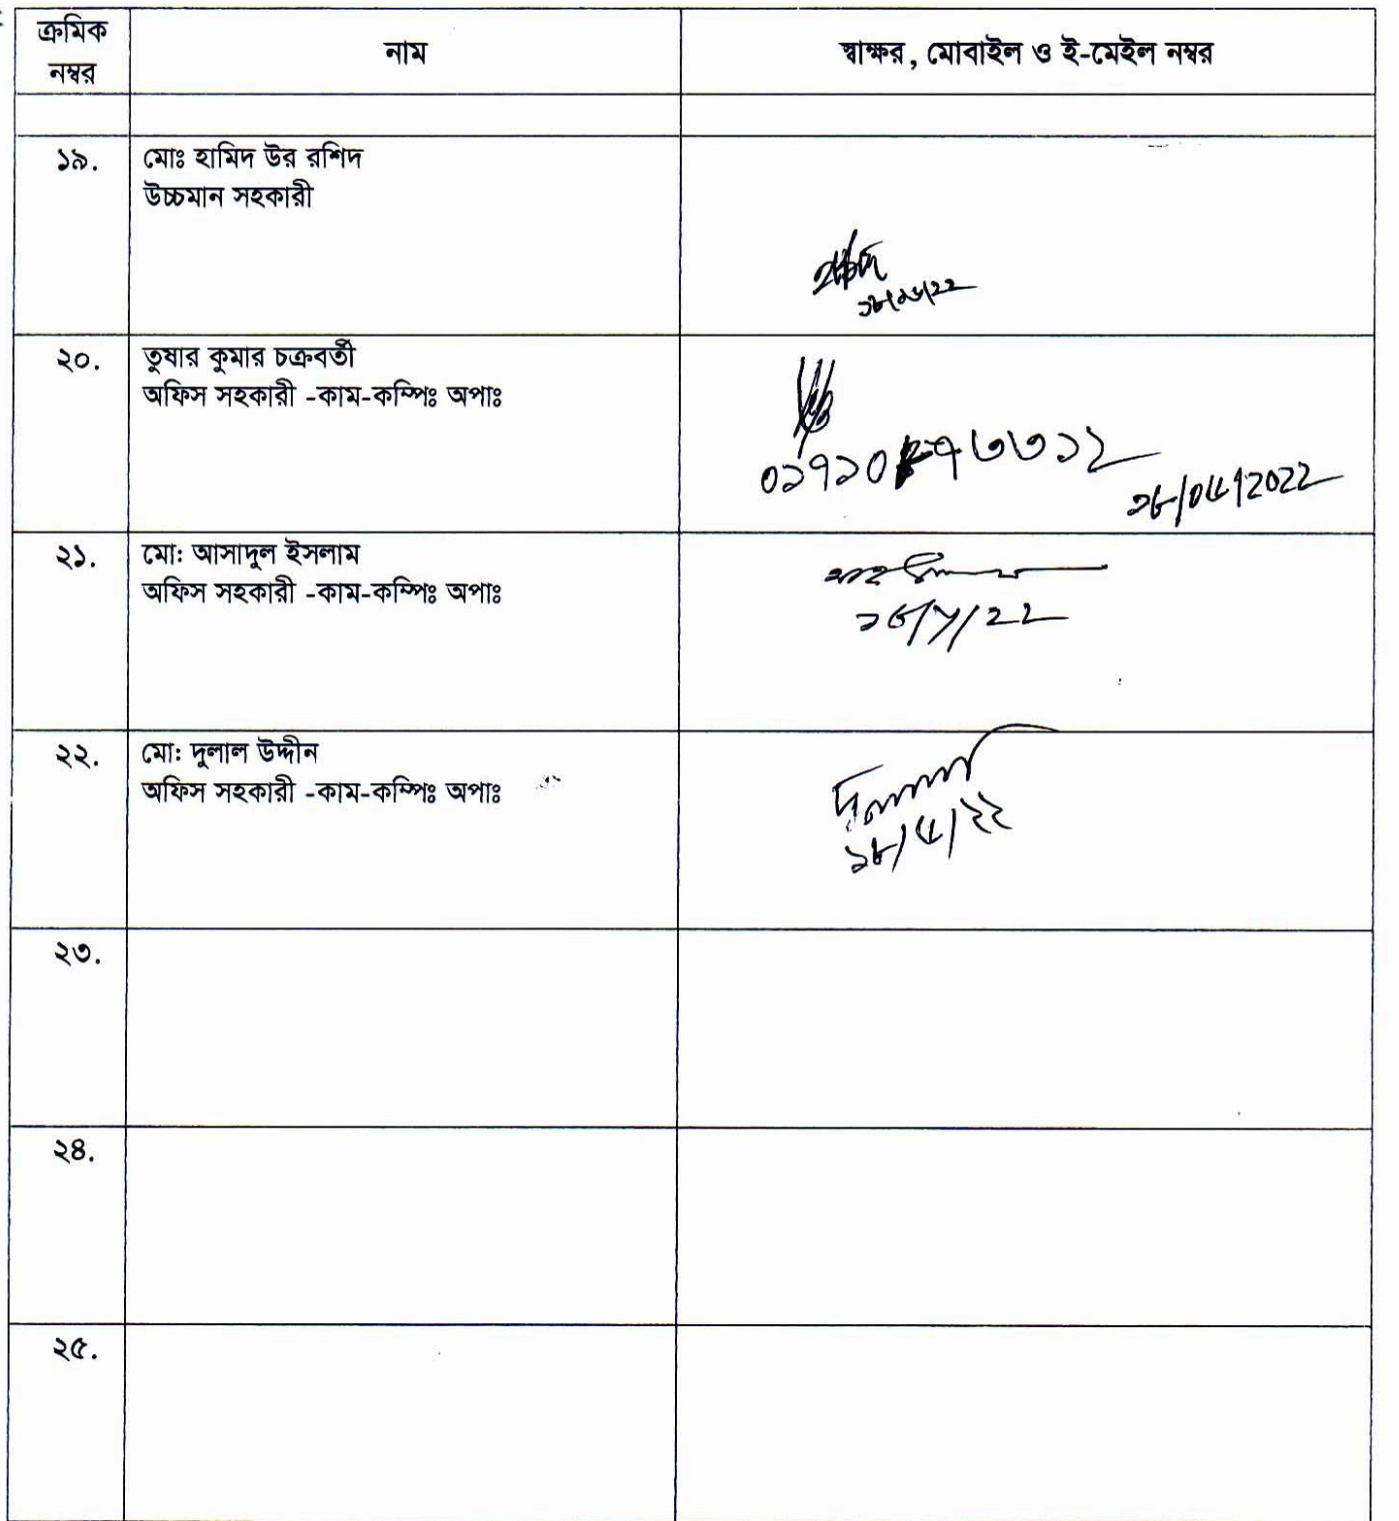 ক্রমিক
নম্বর
নাম
স্বাক্ষর, মোবাইল ও ই-মেইল নম্বর
১৯.
মোঃ হামিদ উর রশিদ
উচ্চমান সহকারী
২০.
তুষার কুমার চক্রবর্তী
অফিস সহকারী -কাম-কম্পিঃ অপাঃ
২১.
মো: আসাদুল ইসলাম
অফিস সহকারী -কাম-কম্পিঃ অপাঃ
২২.
মো: দুলাল উদ্দীন
অফিস সহকারী -কাম-কম্পিঃ অপাঃ
দুলাল
১৮/৫/২২
২৩.
২৪.
২৫.